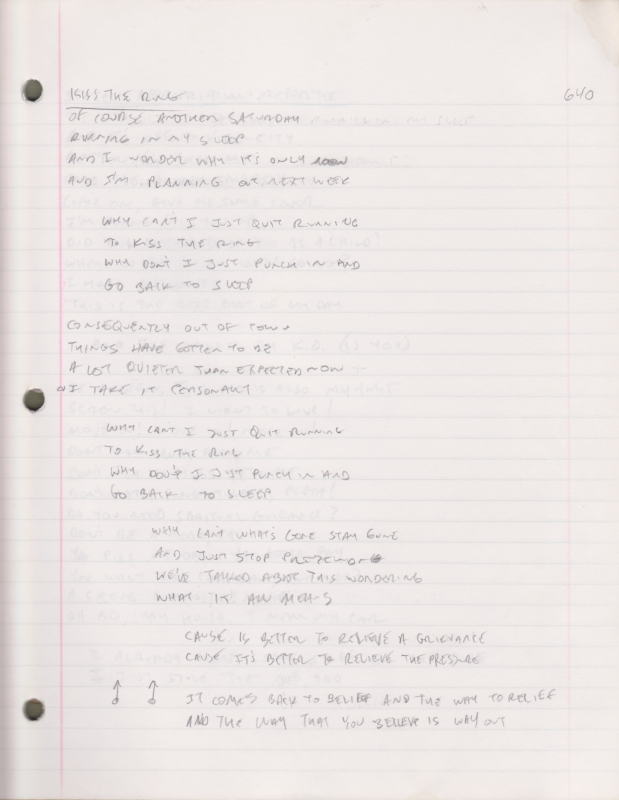 KISS THE RING
640
OF COURSE ANOTHER SATURDAY
RUNNING IN MY SLEEP
AND I WONDER WHY IT'S ONLY NOON
AND I'M PLANNING OUT NEXT WEEK
WHY CAN'T I JUST QUIT RUNNING
TO KISS THE RING
WHY DON'T I JUST PUNCH IN AND
GO BACK TO SLEEP
CONSEQUENTLY OUT OF TOWN
THINGS HAVE GOTTEN TO BE
A LOT QUIETER THAN EXPECTED NOW
I TAKE IT PERSONALLY
WHY CANT I JUST QUIT RUNNING
TO KISS THE RING
WHY DON'T I JUST PUNCH IN AND
GO BACK TO SLEEP
WHY CAN'T WHAT'S GONE STAY GONE
AND JUST STOP
WE'VE TALKED ABOUT THIS WONDERING
WHAT IT ALL MEANS
CAUSE IS BETTER TO RELIEVE A GRIEVANCE
CAUSE IT'S BETTER TO RELIEVE THE PRESSURE
IT COMES BACK TO BELIEF AND THE WAY TO RELIEF
AND THE WAY THAT YOU BELIEVE IS WAY OUT